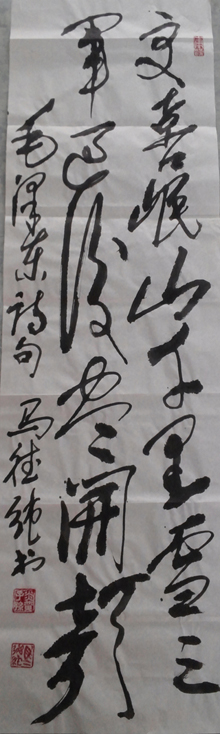 更喜岷山千里雪三
军过后尽开颜
毛泽东诗句 马德纯书